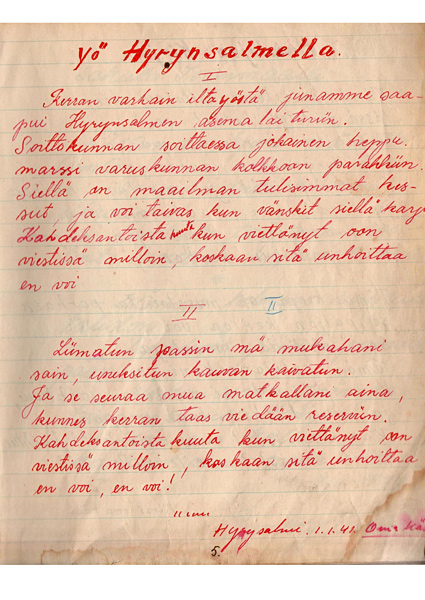 Yö Hyrynsalmella.
I
Kerran varhain iltayöstä junamme saa-
pui Hyrynsalmen asema laituriin.
Soittokunnan soittaessa jokainen heppu
marssi varuskunnan kolkkoan parakkiin.
Siellä on maailman tulisimmat kis-
sut, ja voi taivas kun vänskit siellä karj
Kahdeksantoista kuuta kun viettänyt oon
viestissä milloin, koskaan sitä unhoittaa
en voi
II II
Liimatun passin mä mukahani
sain, uneksitun kauvan kaivatun.
Ja se seuraa mua matkallani aina,
kunnes kerran taas viedään reserviin.
Kahdeksantoista kuuta kun viettänyt oon
viestissä milloin, koskaan sitä unhoittaa
en voi, en voi!
Hyrysalmi. 1.1.41. Oma
5.